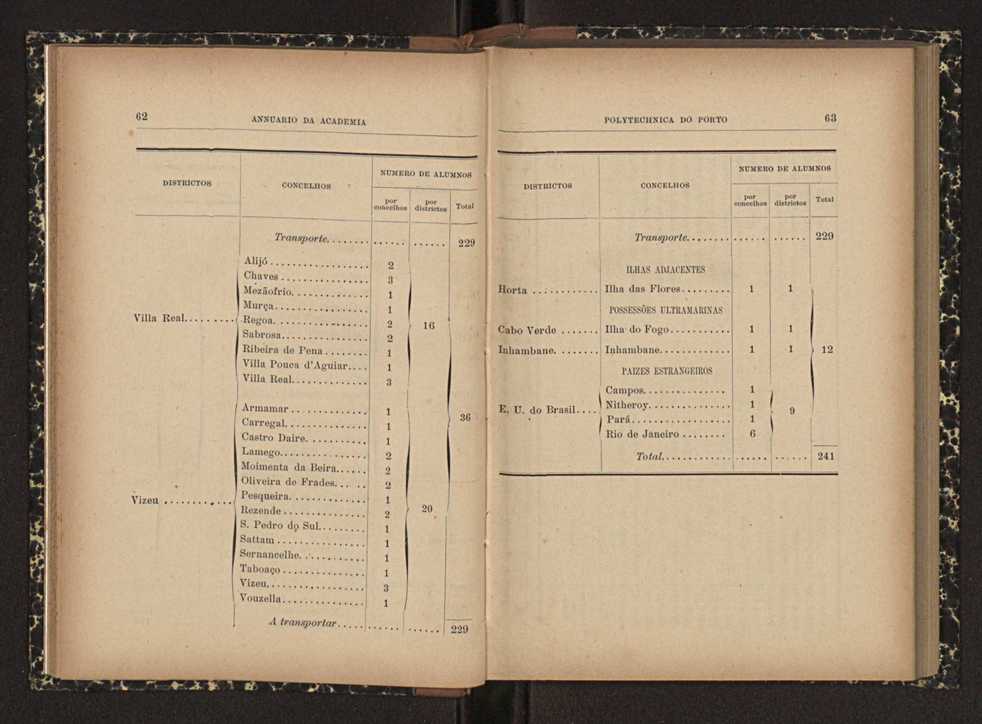 62
ANNUARIO DA ACADEMIA
DISTRICTOS
CONCELHOS
NUMERO DE ALUMNOS
por concelhos
por districtos
Total
Transporte....... ...... ...... 229
Villa Real........
Alijó.................. 2
Chaves............... 3
Mezãofrio............. 1
Murça................. 1
Regoa................. 2
Sabrosa............... 2
Ribeira de Pena........ 1
Villa Pouca d'Aguiar.... 1
Villa Real............. 3
16
Vizeu...........
Armamar.............. 1
Carregal.............. 1
Castro Daire........... 1
Lamego............... 2
Moimenta da Beira...... 2
Oliveira de Frades...... 2
Pesqueira............. 1
Rezende.............. 2
S. Pedro do Sul........ 1
Sattam............... 1
Sernancelhe........... 1
Taboaço.............. 1
Vizeu................. 3
Vouzella.............. 1
20
36
A transportar..... ...... ...... 229
POLYTECHNICA DO PORTO
63
DISTRICTOS
CONCELHOS
NUMERO DE ALUMNOS
por concelhos
por districtos
Total
Transporte....... ...... ...... 229
ILHAS ADJACENTES
Horta ........... Ilha das Flores......... 1 1
POSSESSÕES ULTRAMARINAS
Cabo Verde ....... Ilha do Fogo........... 1 1
Inhambane........ Inhambane............. 1 1 12
PAIZES ESTRANGEIROS
E. U. do Brasil....
Campos............... 1
Nitheroy.............. 1
Pará.................. 1
Rio de Janeiro ........ 6
9
Total............ ...... ...... 241